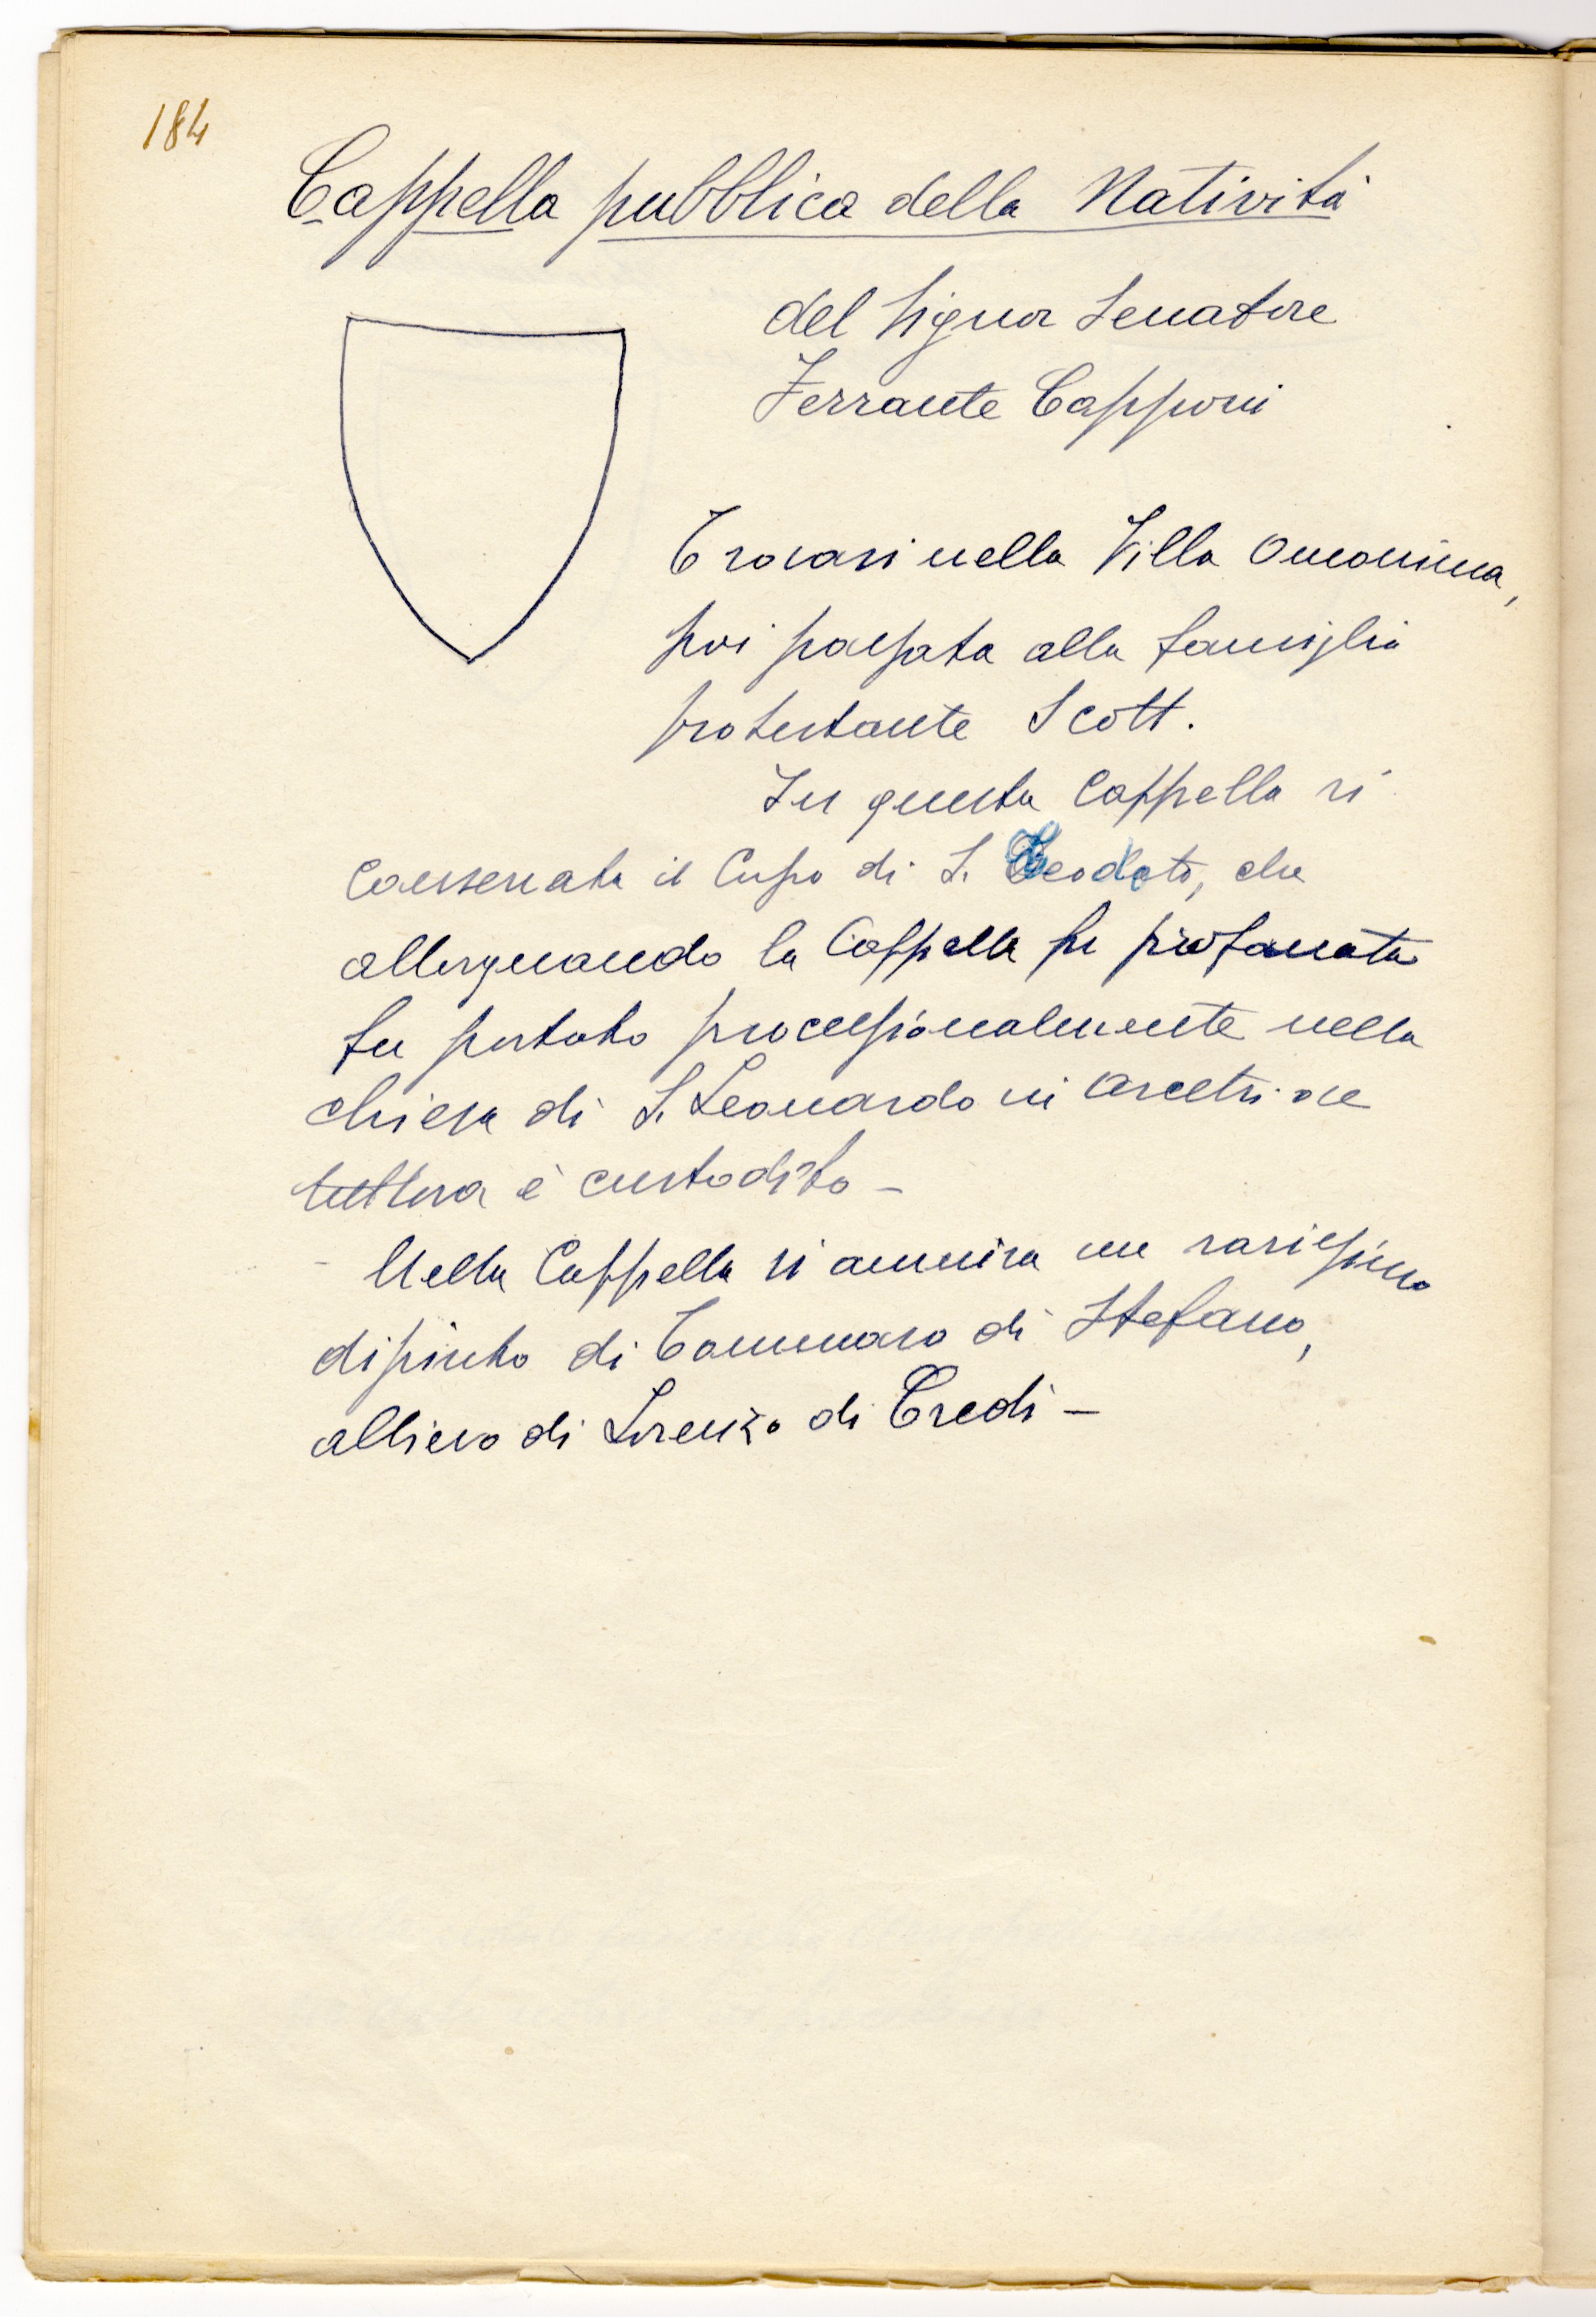 184
Cappella pubblica della Natività
del Signor Senatore
Ferrante Capponi
Trovasi nella Villa Omonima,
poi passata alla famiglia
protestante Scott.
In questa Cappella si
conservata il Corpo di S. Teodoto, che
allorquando la Cappella fu profanata
fu portato processionalmente nella
chiesa di S. Leonardo in Arcetri ove
tuttora è custodito –
Nella Cappella si ammira un rarissimo
dipinto di Tommaso di Stefano,
allievo di Lorenzo di Credi –